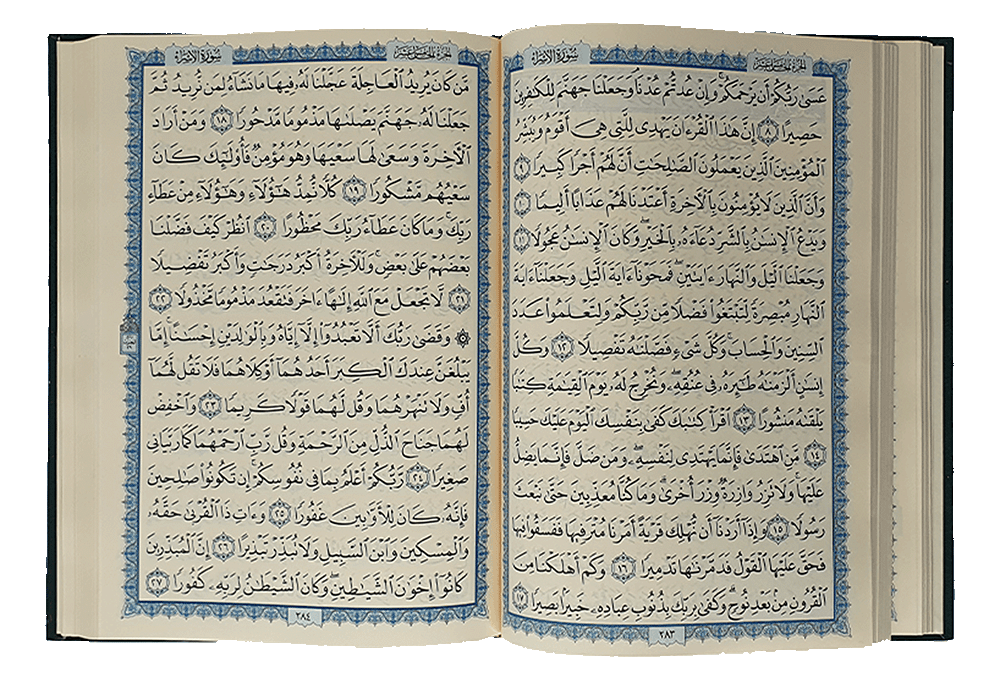 سُورَةُ الإِسۡرَاءِ
الجُزءُ الخَامِسَ عَشَرَ
عَسَىٰ رَبُّكُمۡ أَن يَرۡحَمَكُمۡۚ وَإِنۡ عُدتُّمۡ عُدۡنَاۚ وَجَعَلۡنَا جَهَنَّمَ لِلۡكَٰفِرِينَ
حَصِيرًا ٨ إِنَّ هَٰذَا ٱلۡقُرۡءَانَ يَهۡدِي لِلَّتِي هِيَ أَقۡوَمُ وَيُبَشِّرُ
ٱلۡمُؤۡمِنِينَ ٱلَّذِينَ يَعۡمَلُونَ ٱلصَّٰلِحَٰتِ أَنَّ لَهُمۡ أَجۡرٗا كَبِيرٗا ٩
وَأَنَّ ٱلَّذِينَ لَا يُؤۡمِنُونَ بِٱلۡأٓخِرَةِ أَعۡتَدۡنَا لَهُمۡ عَذَابًا أَلِيمٗا ١٠
وَيَدۡعُ ٱلۡإِنسَٰنُ بِٱلشَّرِّ دُعَآءَهُۥ بِٱلۡخَيۡرِۖ وَكَانَ ٱلۡإِنسَٰنُ عَجُولٗا ١١
وَجَعَلۡنَا ٱلَّيۡلَ وَٱلنَّهَارَ ءَايَتَيۡنِۖ فَمَحَوۡنَآ ءَايَةَ ٱلَّيۡلِ وَجَعَلۡنَآ ءَايَةَ
ٱلنَّهَارِ مُبۡصِرَةٗ لِّتَبۡتَغُواْ فَضۡلٗا مِّن رَّبِّكُمۡ وَلِتَعۡلَمُواْ عَدَدَ
ٱلسِّنِينَ وَٱلۡحِسَابَۚ وَكُلَّ شَيۡءٖ فَصَّلۡنَٰهُ تَفۡصِيلٗا ١٢ وَكُلَّ
إِنسَٰنٍ أَلۡزَمۡنَٰهُ طَٰٓئِرَهُۥ فِي عُنُقِهِۦۖ وَنُخۡرِجُ لَهُۥ يَوۡمَ ٱلۡقِيَٰمَةِ كِتَٰبٗا
يَلۡقَىٰهُ مَنشُورًا ١٣ ٱقۡرَأۡ كِتَٰبَكَ كَفَىٰ بِنَفۡسِكَ ٱلۡيَوۡمَ عَلَيۡكَ حَسِيبٗا
١٤ مَّنِ ٱهۡتَدَىٰ فَإِنَّمَا يَهۡتَدِي لِنَفۡسِهِۦۖ وَمَن ضَلَّ فَإِنَّمَا يَضِلُّ
عَلَيۡهَاۚ وَلَا تَزِرُ وَازِرَةٞ وِزۡرَ أُخۡرَىٰۗ وَمَا كُنَّا مُعَذِّبِينَ حَتَّىٰ نَبۡعَثَ
رَسُولٗا ١٥ وَإِذَآ أَرَدۡنَآ أَن نُّهۡلِكَ قَرۡيَةً أَمَرۡنَا مُتۡرَفِيهَا فَفَسَقُواْ فِيهَا
فَحَقَّ عَلَيۡهَا ٱلۡقَوۡلُ فَدَمَّرۡنَٰهَا تَدۡمِيرٗا ١٦ وَكَمۡ أَهۡلَكۡنَا مِنَ
ٱلۡقُرُونِ مِنۢ بَعۡدِ نُوحٖۗ وَكَفَىٰ بِرَبِّكَ بِذُنُوبِ عِبَادِهِۦ خَبِيرَۢا بَصِيرٗا ١٧
٢٨٣
الجُزءُ الخَامِسَ عَشَرَ
سُورَةُ الإِسۡرَاءِ
مَّن كَانَ يُرِيدُ ٱلۡعَاجِلَةَ عَجَّلۡنَا لَهُۥ فِيهَا مَا نَشَآءُ لِمَن نُّرِيدُ ثُمَّ
جَعَلۡنَا لَهُۥ جَهَنَّمَ يَصۡلَىٰهَا مَذۡمُومٗا مَّدۡحُورٗا ١٨ وَمَنۡ أَرَادَ
ٱلۡأٓخِرَةَ وَسَعَىٰ لَهَا سَعۡيَهَا وَهُوَ مُؤۡمِنٞ فَأُوْلَٰٓئِكَ كَانَ
سَعۡيُهُم مَّشۡكُورٗا ١٩ كُلّٗا نُّمِدُّ هَٰٓؤُلَآءِ وَهَٰٓؤُلَآءِ مِنۡ عَطَآءِ
رَبِّكَۚ وَمَا كَانَ عَطَآءُ رَبِّكَ مَحۡظُورًا ٢٠ ٱنظُرۡ كَيۡفَ فَضَّلۡنَا
بَعۡضَهُمۡ عَلَىٰ بَعۡضٖۚ وَلَلۡأٓخِرَةُ أَكۡبَرُ دَرَجَٰتٖ وَأَكۡبَرُ تَفۡضِيلٗا
٢١ لَّا تَجۡعَلۡ مَعَ ٱللَّهِ إِلَٰهًا ءَاخَرَ فَتَقۡعُدَ مَذۡمُومٗا مَّخۡذُولٗا ٢٢
۞ وَقَضَىٰ رَبُّكَ أَلَّا تَعۡبُدُوٓاْ إِلَّآ إِيَّاهُ وَبِٱلۡوَٰلِدَيۡنِ إِحۡسَٰنًاۚ إِمَّا
يَبۡلُغَنَّ عِندَكَ ٱلۡكِبَرَ أَحَدُهُمَآ أَوۡ كِلَاهُمَا فَلَا تَقُل لَّهُمَآ
أُفّٖ وَلَا تَنۡهَرۡهُمَا وَقُل لَّهُمَا قَوۡلٗا كَرِيمٗا ٢٣ وَٱخۡفِضۡ
لَهُمَا جَنَاحَ ٱلذُّلِّ مِنَ ٱلرَّحۡمَةِ وَقُل رَّبِّ ٱرۡحَمۡهُمَا كَمَا رَبَّيَانِي
صَغِيرٗا ٢٤ رَّبُّكُمۡ أَعۡلَمُ بِمَا فِي نُفُوسِكُمۡۚ إِن تَكُونُواْ صَٰلِحِينَ
فَإِنَّهُۥ كَانَ لِلۡأَوَّٰبِينَ غَفُورٗا ٢٥ وَءَاتِ ذَا ٱلۡقُرۡبَىٰ حَقَّهُۥ
وَٱلۡمِسۡكِينَ وَٱبۡنَ ٱلسَّبِيلِ وَلَا تُبَذِّرۡ تَبۡذِيرًا ٢٦ إِنَّ ٱلۡمُبَذِّرِينَ
كَانُوٓاْ إِخۡوَٰنَ ٱلشَّيَٰطِينِۖ وَكَانَ ٱلشَّيۡطَٰنُ لِرَبِّهِۦ كَفُورٗا ٢٧
٢٨٤